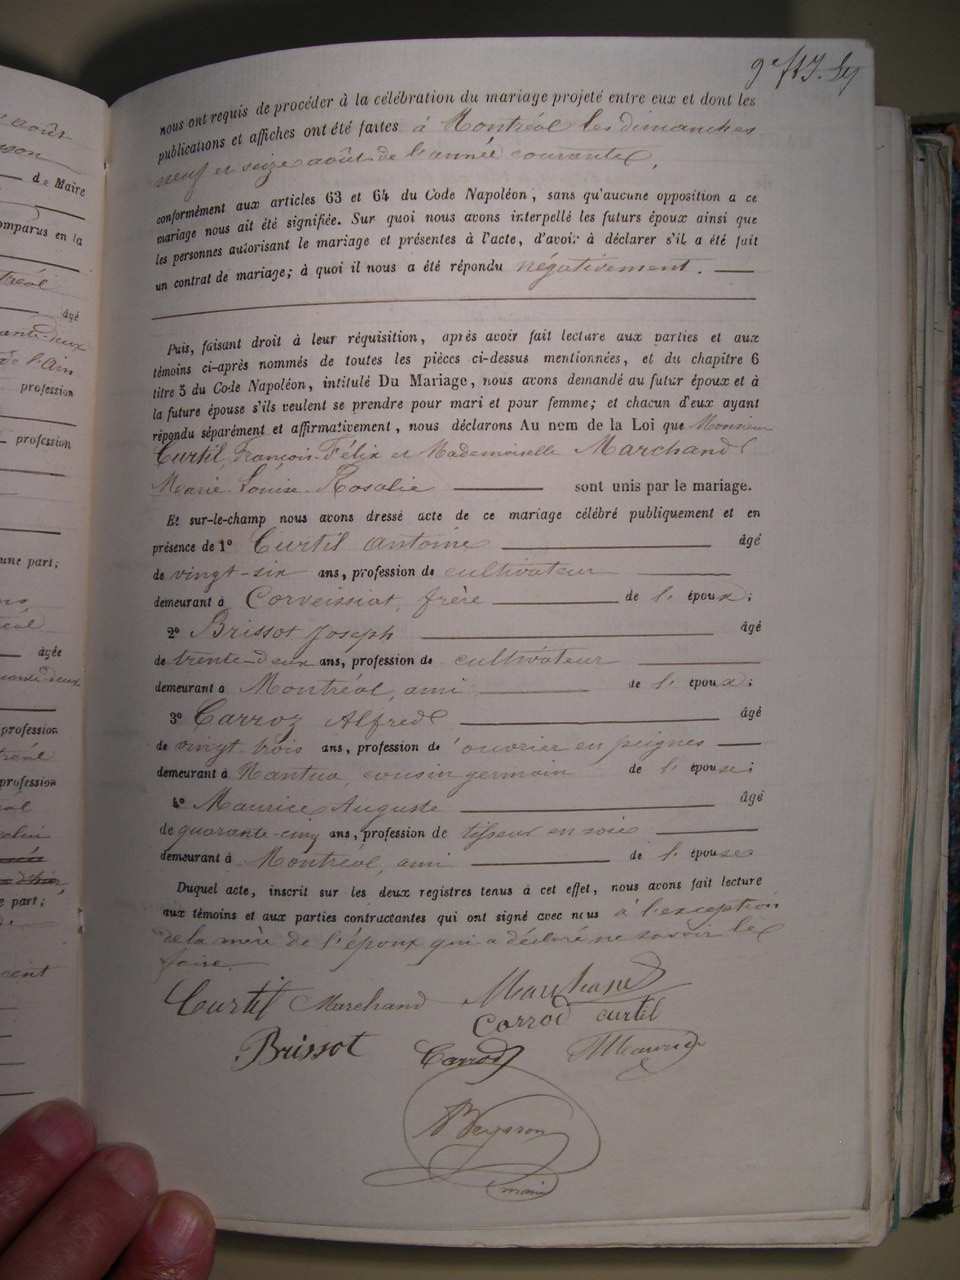 nous ont requis de procéder à la célébration du mariage projeté entre eux et dont les
publications et affiches ont été faites à Montréal les dimanches
neuf et seize août de l'année courante,
conformément aux articles 63 et 64 du Code Napoléon, sans qu'aucune opposition a ce
mariage nous ait été signifiée. Sur quoi nous avons interpellé les futurs époux ainsi que
les personnes autorisant le mariage et présentes à l'acte, d'avoir à déclarer s'il a été fait
un contrat de mariage; à quoi il nous a été répondu négativement.
Puis, faisant droit à leur réquisition, après avoir fait lecture aux parties et aux
témoins ci-après nommés de toutes les pièces ci-dessus mentionnées, et du chapitre 6
titre 5 du Code Napoléon, intitulé Du Mariage, nous avons demandé au futur époux et à
la future épouse s'ils veulent se prendre pour mari et pour femme; et chacun d'eux ayant
répondu séparément et affirmativement, nous déclarons Au nom de la Loi que Monsieur
Curtil, François-Félix et Mademoiselle Marchand
Marie-Louise-Rosalie sont unis par le mariage.
Et sur-le-champ nous avons dressé acte de ce mariage célébré publiquement et en
présence de 1º Curtil antoine âgé
de vingt-six ans, profession de cultivateur
demeurant à Corveissiat, frère de l'époux;
2º Brissot Joseph âgé
de trente-deux ans, profession de cultivateur
demeurant à Montréal, ami de l'époux;
3º Carroz Alfred âgé
de vingt trois ans, profession de ouvrier en peignes
demeurant à Nantua, cousin germain de l'épouse;
4º Maurice Auguste âgé
de quarante-cinq ans, profession de tisseur en soie
demeurant à Montréal, ami de l'épouse
Duquel acte, inscrit sur les deux registres tenus à cet effet, nous avons fait lecture
aux témoins et aux parties contractantes qui ont signé avec nous à l'exception
de la mère de l'époux qui a déclaré ne savoir le
faire.
Curtil Marchand Marchand
Carroz curtil
Brissot Carroz Maurice
maire
août
de Maire
comparus en la
âgé
de l'Ain
profession
profession
une part;
âgée
profession
profession
e part;